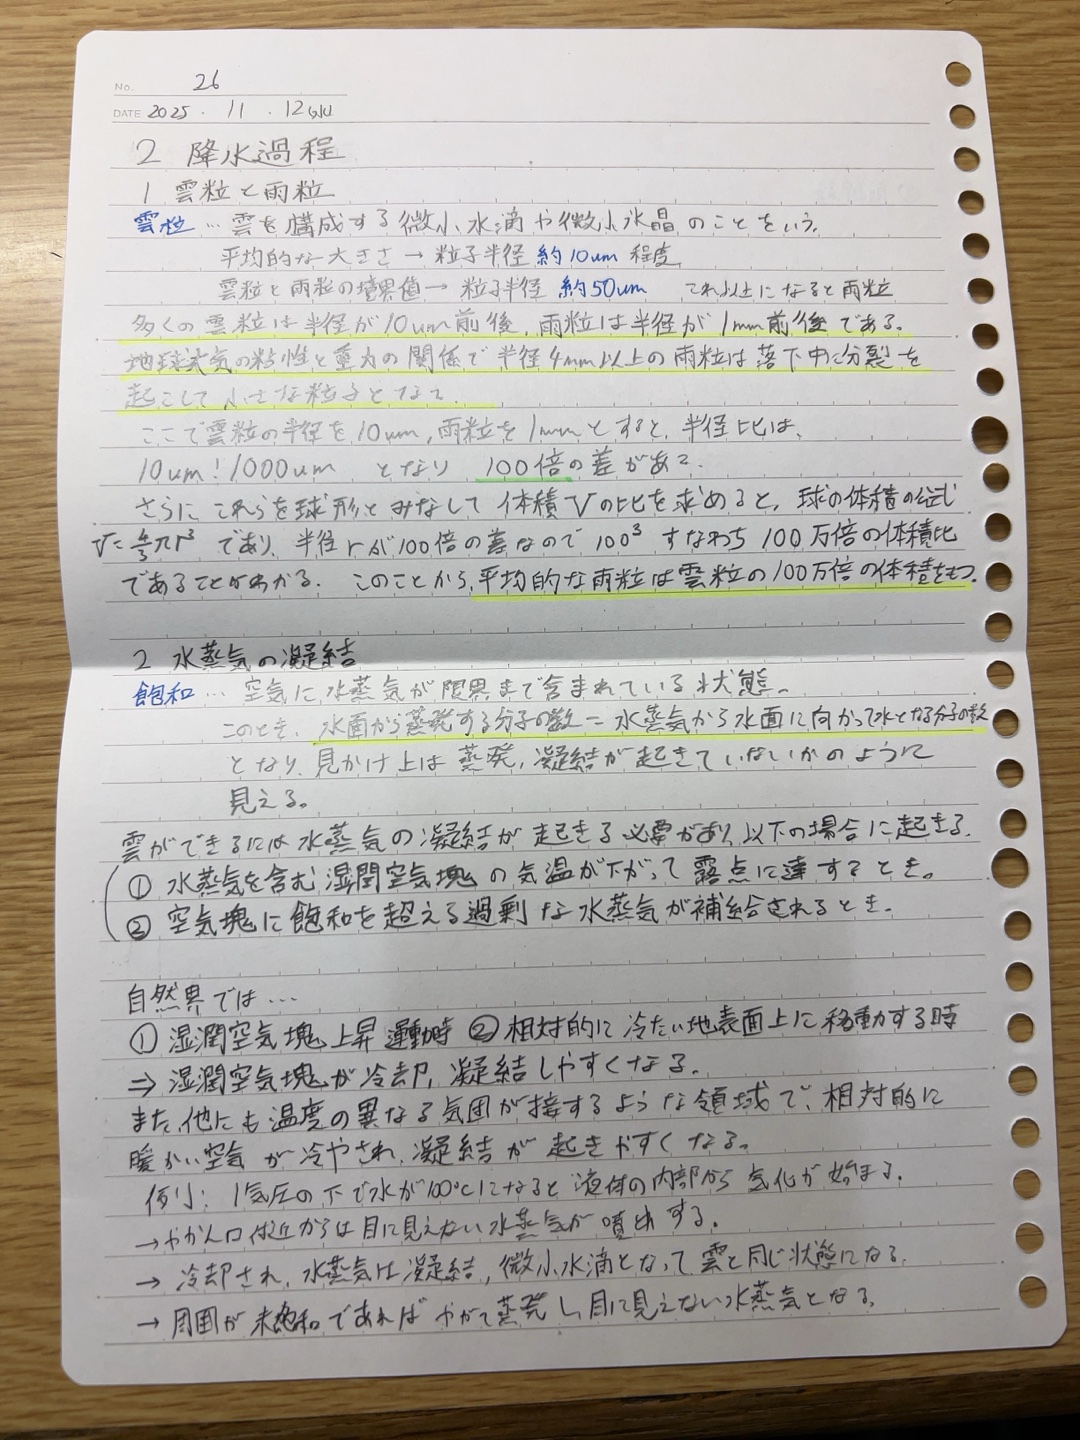 No. 26
DATE 2025 . 11 . 12
2 降水過程
1 雲粒と雨粒
雲粒 … 雲を構成する微小水滴や微小氷晶のことをいう。
平均的な大きさ → 粒子半径 約10um 程度
雲粒と雨粒の境界値 → 粒子半径 約50um これ以上になると雨粒
多くの雲粒は半径が10um前後、雨粒は半径が1mm前後である。
地球大気の粘性と重力の関係で半径4mm以上の雨粒は落下中に分裂を
起こして小さな粒子となる。
ここで雲粒の半径を10um, 雨粒を1mmとすると、半径比は、
10um:1000um となり 100倍の差がある。
さらにこれらを球形とみなして体積Vの比を求めると、球の体積の公式
V=4/3πr³ であり、半径rが100倍の差なので100³ すなわち100万倍の体積比
であることがわかる。 このことから、平均的な雨粒は雲粒の100万倍の体積をもつ。
2 水蒸気の凝結
飽和 … 空気に水蒸気が限界まで含まれている状態。
このとき、水面から蒸発する分子の数 = 水蒸気から水面に向かって水となる分子の数
となり、見かけ上は蒸発, 凝結が起きていないかのように
見える。
雲ができるには水蒸気の凝結が起きる必要があり、以下の場合に起きる。
① 水蒸気を含む湿潤空気塊の気温が下がって露点に達するとき。
② 空気塊に飽和を超える過剰な水蒸気が補給されるとき。
自然界では…
① 湿潤空気塊上昇運動時 ② 相対的に冷たい地表面上に移動する時
⇒ 湿潤空気塊が冷却, 凝結しやすくなる。
また、他にも温度の異なる気団が接するような領域で、相対的に
暖かい空気が冷やされ、凝結が起きやすくなる。
例: 1気圧の下で水が100℃になると液体の内部から気化が始まる。
→ やかん口付近からは目に見えない水蒸気が噴出する。
→ 冷却され、水蒸気は凝結, 微小水滴となって雲と同じ状態になる。
→ 周囲が未飽和であればやがて蒸発し目に見えない水蒸気となる。